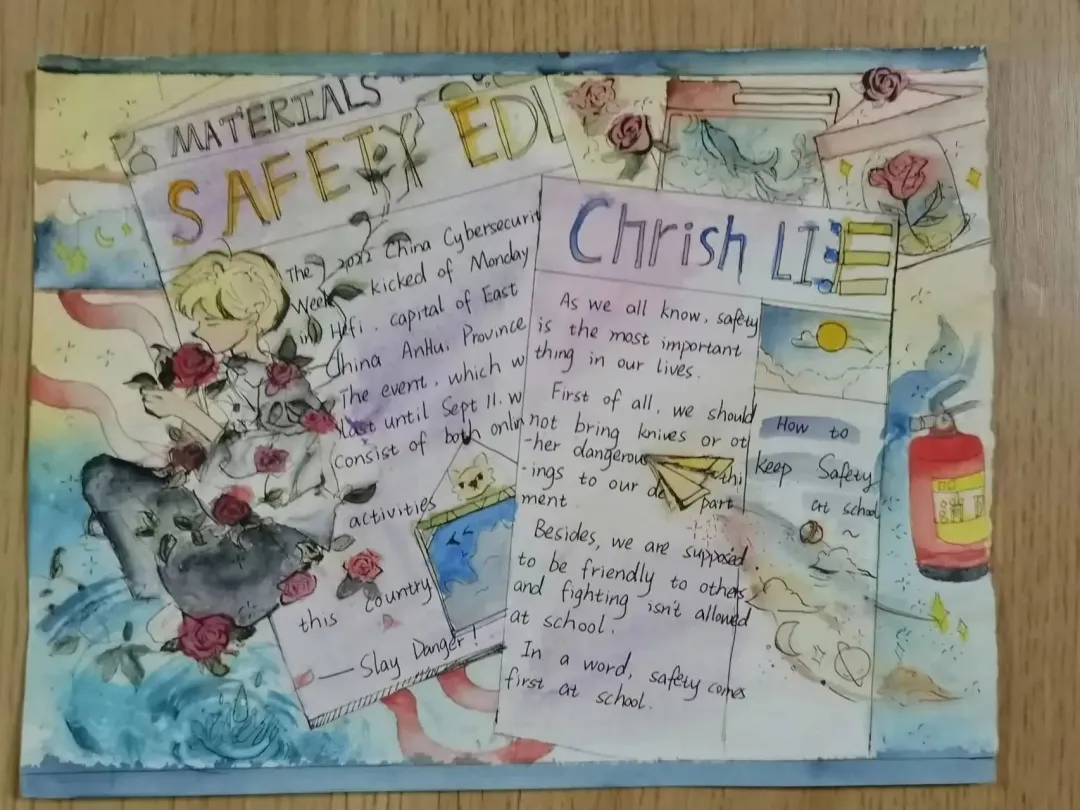 MATERIALS
SAFETY EDU
The 2022 China Cybersecurit
Week kicked of Monday
in Hefi, capital of East
China AnHui Province
The event, which w
last until Sept 11. w
consist of both onlin
activities
this country
— Slay Danger!
Chrish LIFE
As we all know, safety
is the most important
thing in our lives.
First of all, we should
not bring knives or ot
-her dangerous thi
-ings to our de part
ment
Besides, we are supposed
to be friendly to others
and fighting isn't allowed
at school.
In a word, safety comes
first at school.
How to
keep Safety
at school
~